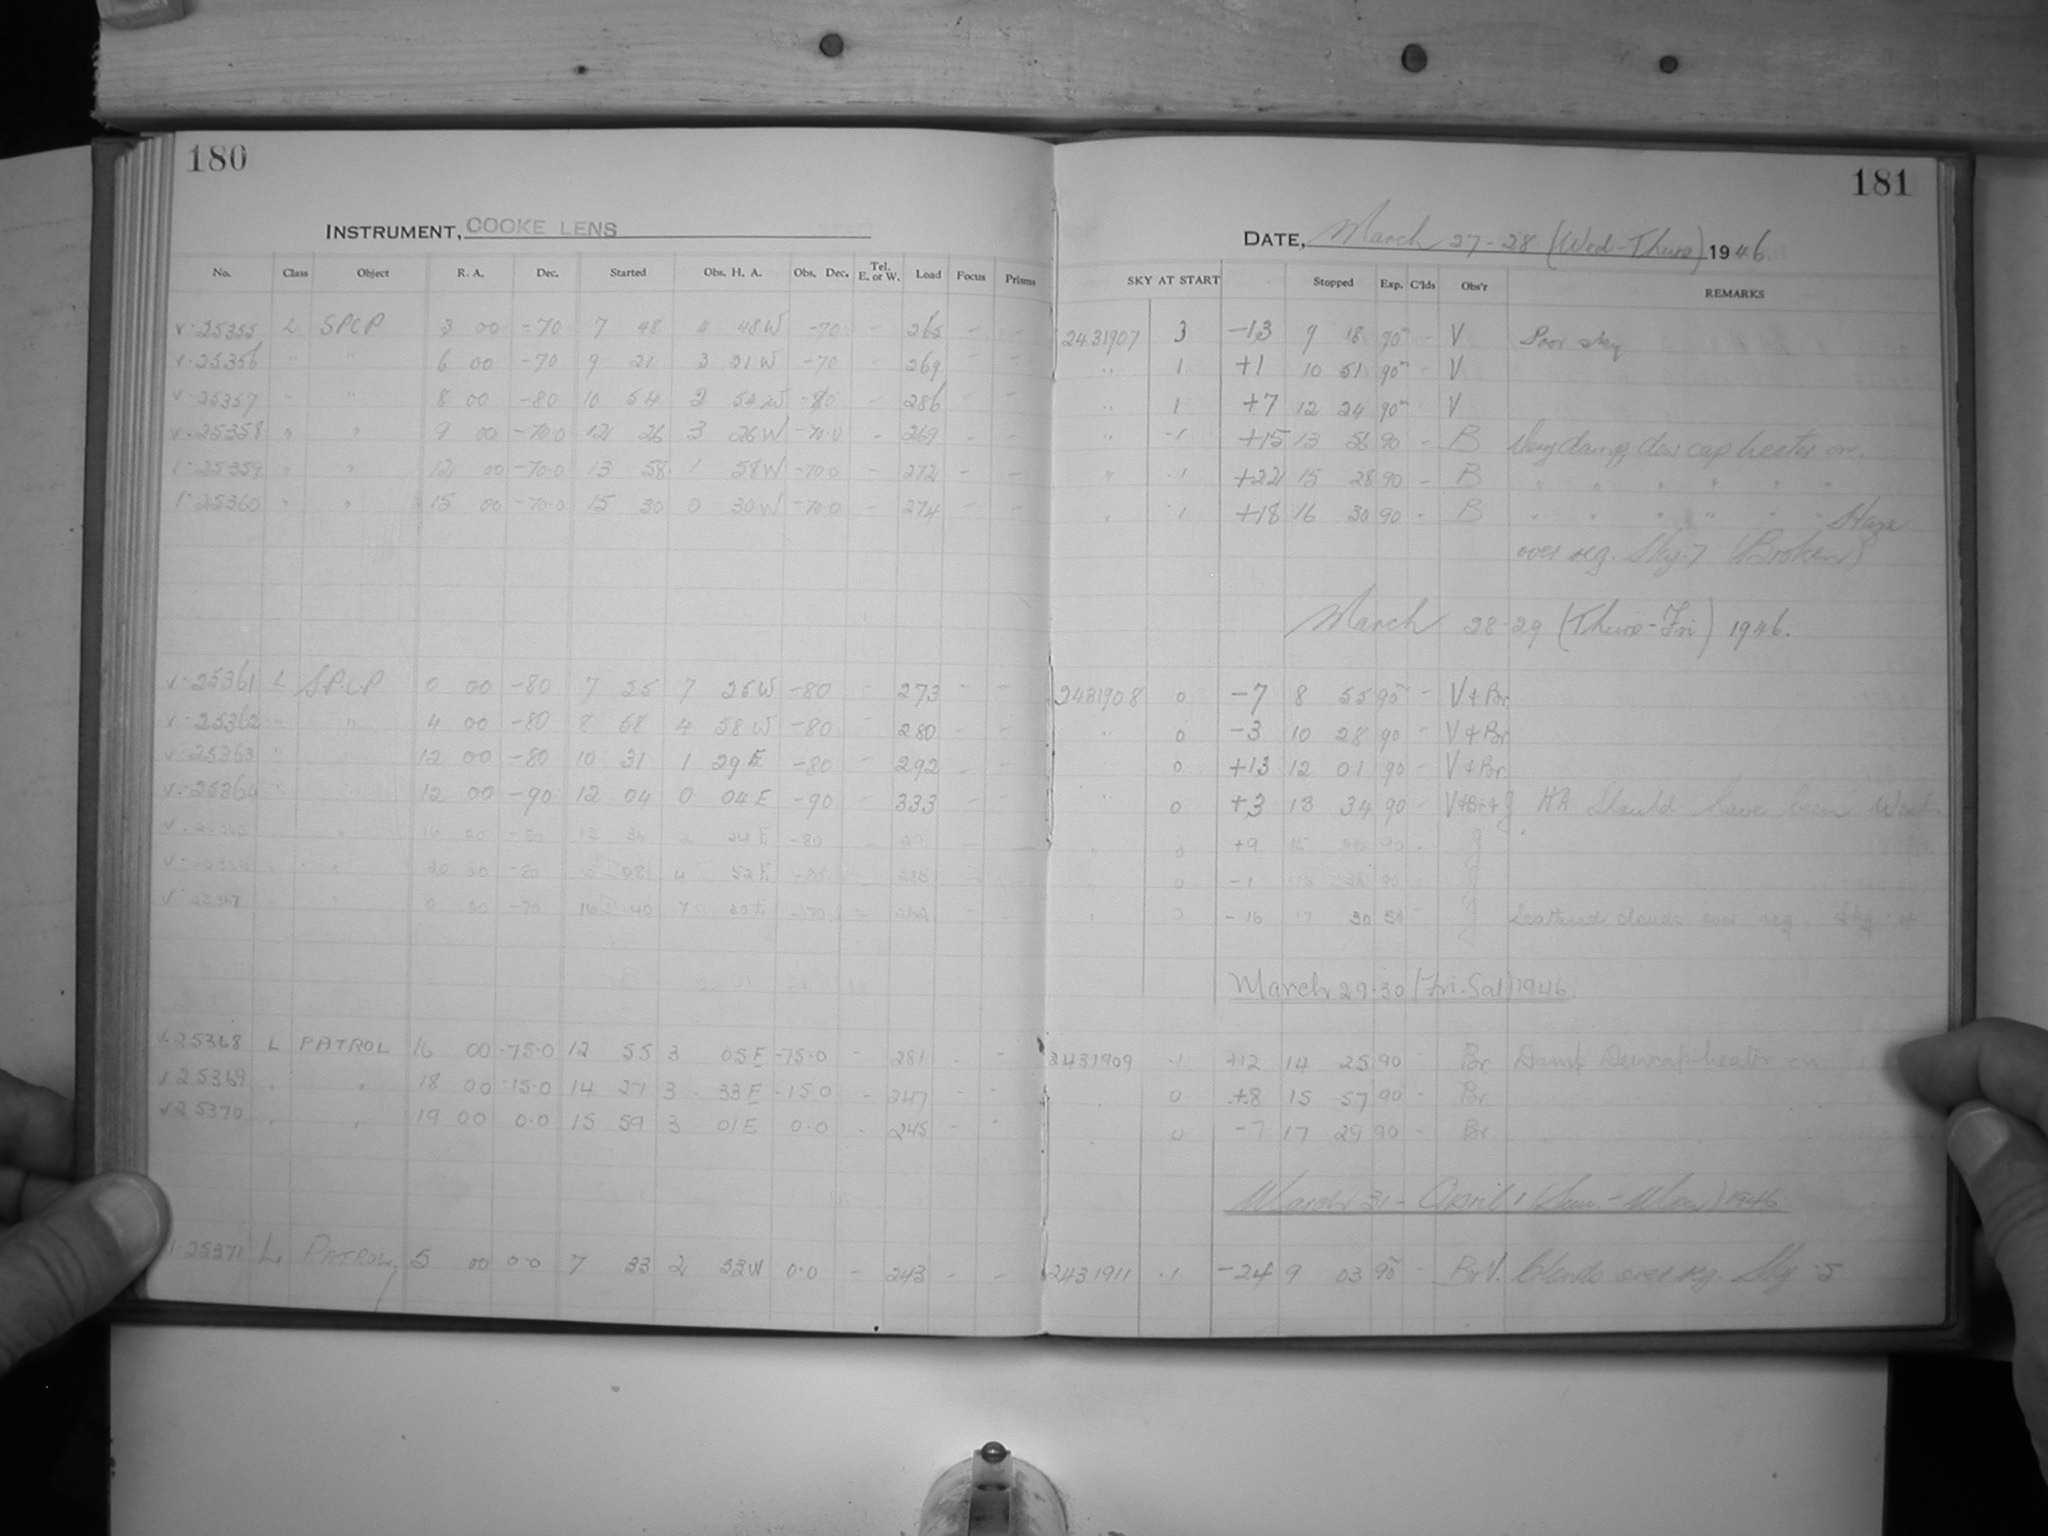 180
INSTRUMENT, COOKE LENS
No. Class Object R. A. Dec. Started Obs. H. A. Obs. Dec. Tel. E. or W. Load Focus Prisms
25355 L SPCP 3 00 -70 7 48 4 48W -70 - 265 - -
25356 " " 6 00 -70 9 21 3 21W -70 - 269 - -
25357 " " 8 00 -80 10 54 2 54W -80 - 286 - -
25358 " " 9 00 -70.0 12 26 3 26W -70.0 - 269 - -
25359 " " 12 00 -70.0 13 58 1 58W -70.0 - 272 - -
25360 " " 15 00 -70.0 15 30 0 30W -70.0 - 274 - -
25361 L S.P.C.P 0 00 -80 7 25 7 25W -80 - 273 - -
25362 " " 4 00 -80 8 58 4 58W -80 - 280 - -
25363 " " 12 00 -80 10 31 1 29E -80 - 292 - -
25364 12 00 -90 12 04 0 04E -90 - 333
25365 " 16 00 -80 13 36 2 24E -80 -
25366 " 20 00 -80 15 08 4 52E -80 -
25367 " 0 00 -70 16 40 7 20E -70
25368 L PATROL 16 00 -75.0 12 55 3 05E -75.0 - 281 - -
25369 " " 18 00 -15.0 14 27 3 33E -15.0 - 247 - -
25370 " " 19 00 0.0 15 59 3 01E 0.0 - 245 - -
25371 L PATROL 5 00 0.0 7 33 2 33W 0.0 - 243 - -
181
DATE, March 27-28 (Wed-Thurs) 1946
SKY AT START Stopped Exp. C'lds Obs'r REMARKS
2431907 3 -13 9 18 90 - V Poor sky
" 1 +1 10 51 90 - V
" 1 +7 12 24 90 - V
" 1 +15 13 56 90 - B Very damp, dew cap heater on.
" 1 +22 15 28 90 - B " " " " " "
" 1 +18 16 30 90 - B " " " " " " Haze
over reg. Sky 7 (Broken)
March 28-29 (Thurs-Fri) 1946.
2431908 0 -7 8 55 90 - V + Br
" 0 -3 10 28 90 - V + Br
0 +13 12 01 90 - V + Br
" 0 +3 13 34 90 - V+Br+J HA Should have been West
" 0 +9 15 90 - J
" 0 -1 90 J
" 0 -16 17 30 50 J Scattered clouds over reg. Sky 4
March 29-30 (Fri-Sat) 1946.
2431909 1 +12 14 25 90 - Br Damp Dewcap heater on
0 +8 15 57 90 - Br
0 -7 17 29 90 - Br
March 31 - April 1 (Sun.-Mon) 1946
2431911 1 -24 9 03 90 - BrV. Clouds over reg. Sky 5